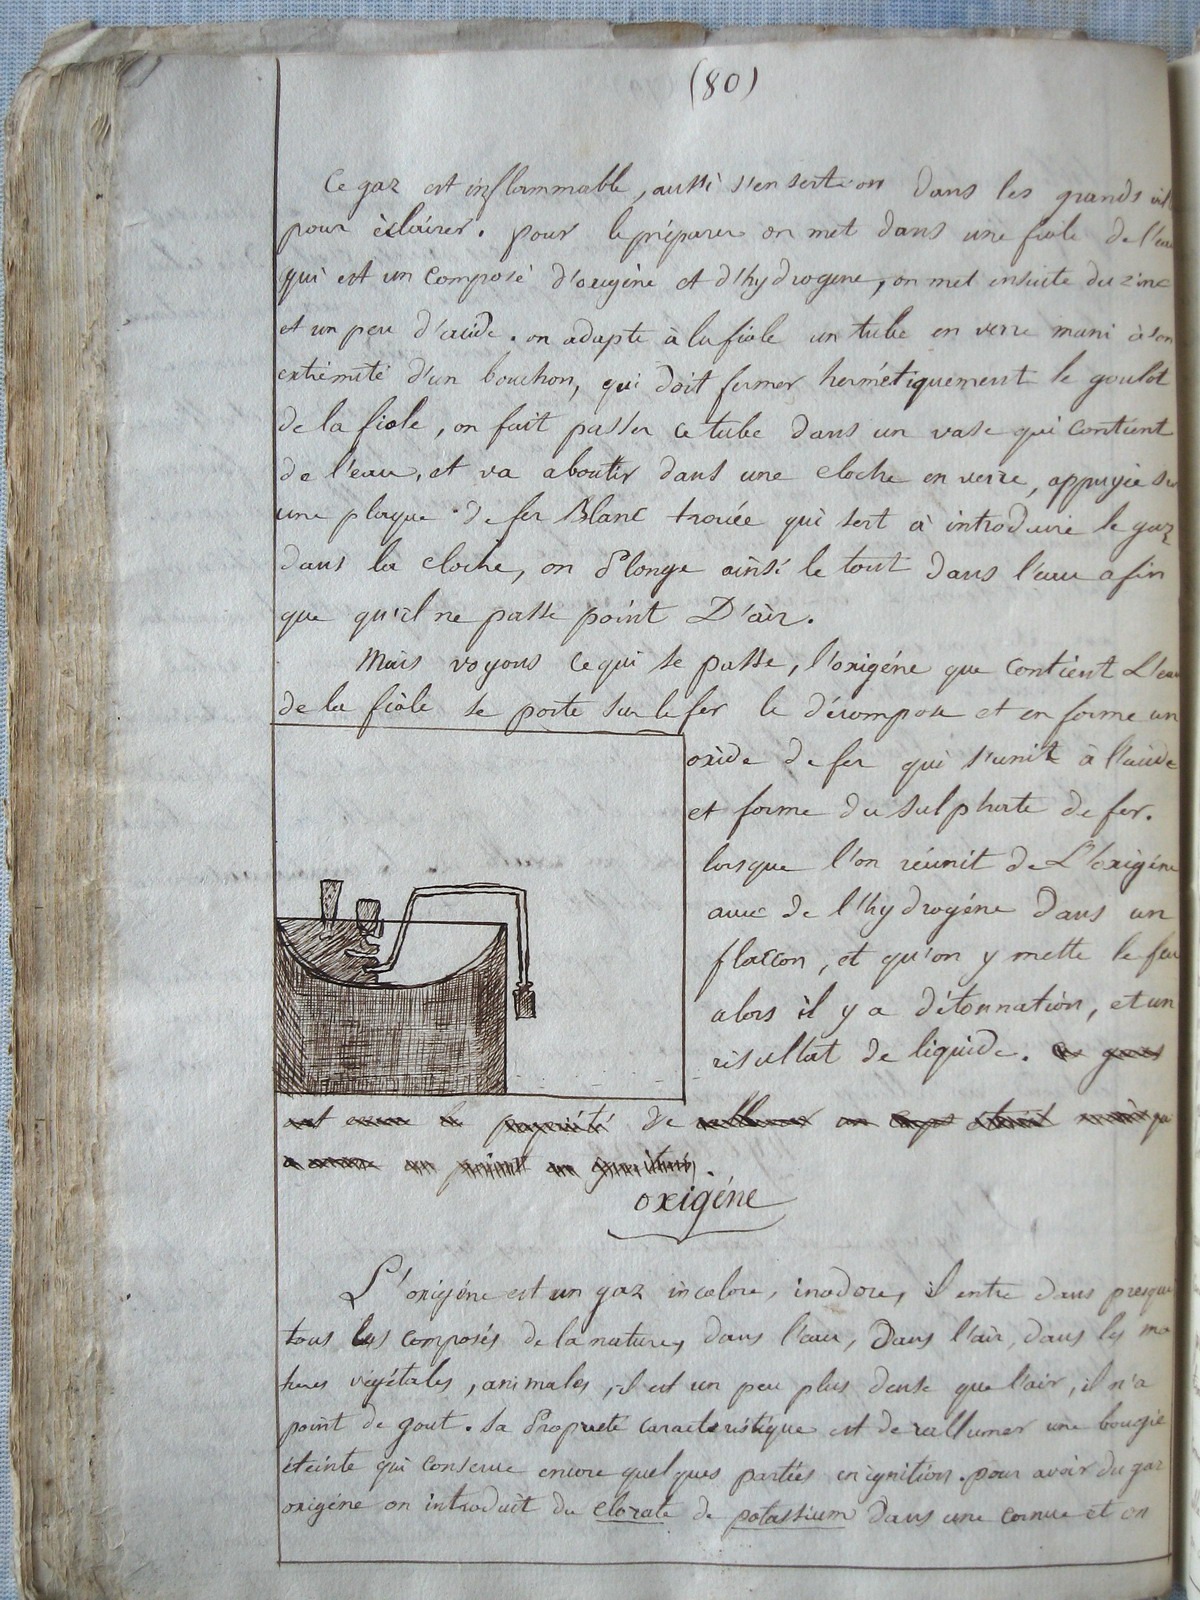 (80)
Ce gaz est inflammable, aussi s'en sert-on dans les grands vil
pour èclairer. pour le préparer on met dans une fiole de l'eau
qui est un composé d'oxigène et d'hydrogene, on met ensuite du zinc
et un peu d'acide. on adapte à la fiole un tube en verre muni à son
extrémité d'un bouchon, qui doit fermer hermétiquement le goulot
de la fiole, on fait passer ce tube dans un vase qui contient
de l'eau, et va aboutir dans une cloche en verre, appuyée su
une plaque de fer Blanc trouée qui sert à introduire le gaz
dans la cloche, on Plonge ainsi le tout dans l'eau afin
que qu'il ne passe point D'air.
Mais voyons ce qui se passe, l'oxigéne que contient L'eau
de la fiole se porte sur le fer le décompose et en forme un
oxide de fer qui s'unit à l'acide
et forme du sulphate de fer.
lorsque l'on réunit de L'oxigéne
avec de l'hydrogéne dans un
flaccon, et qu'on y mette le feu
alors il y a détonnation, et un
résultat de liquide.
propriété de
oxigéne
L'oxigéne est un gaz incolore, inodore, il entre dans presque
tous les composés de la nature, dans l'eau, Dans l'air, dans les ma
tieres végétales, animales, il est un peu plus dense que l'air, il n'a
point de gout. sa Propriété caracteristique est de rallumer une bougie
éteinte qui conserve encore quelques parties en ignition. pour avoir du gaz
oxigéne on introduit du clorate de potassium dans une cornue et on